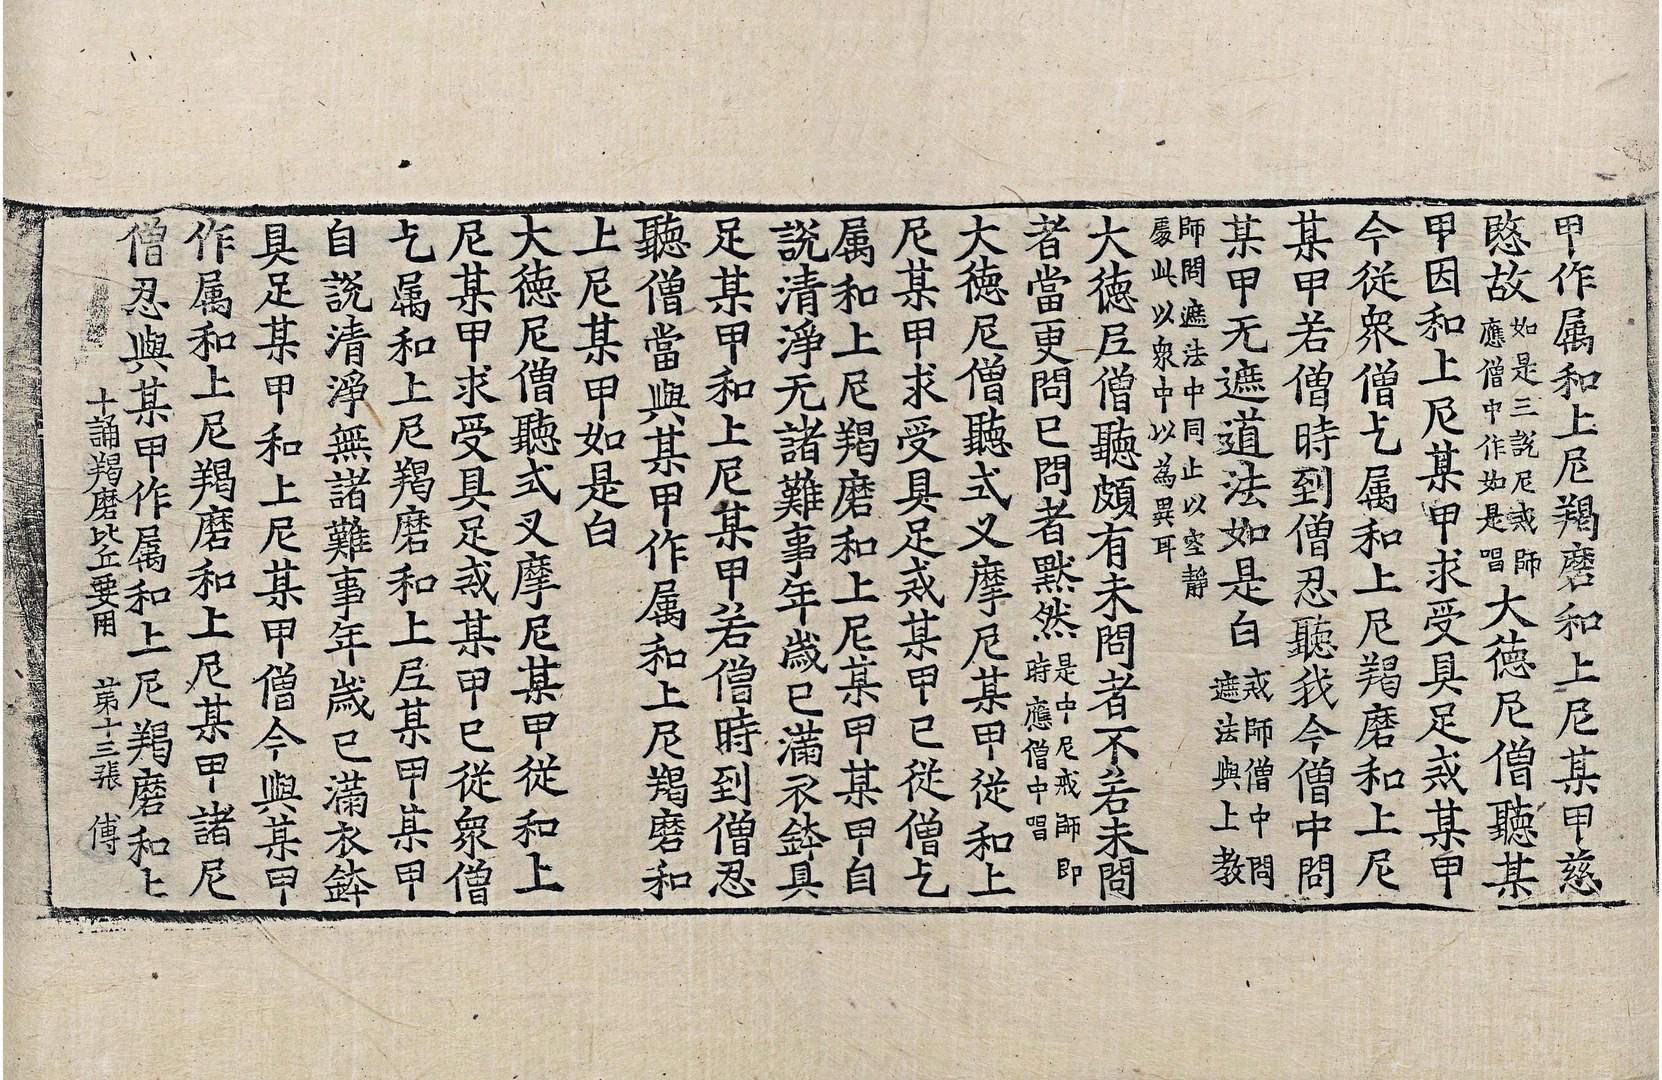 甲作属和上尼羯磨和上尼某甲慈
愍故如是三說尼戒師應僧中作如是唱大德尼僧聽某
甲因和上尼某甲求受具足戒某甲
今從衆僧乞属和上尼羯磨和上尼
某甲若僧時到僧忍聽我今僧中問
某甲无遮道法如是白戒師僧中問遮法與上教
師問遮法中同止以空静
處此以衆中以為異耳
大德尼僧聽頗有未問者不若未問
者當更問已問者默然是中尼戒師即時應僧中唱
大德尼僧聽式叉摩尼某甲從和上
尼某甲求受具足戒某甲已從僧乞
属和上尼羯磨和上尼某甲某甲自
說清淨无諸難事年歲已滿衣鉢具
足某甲和上尼某甲若僧時到僧忍
聽僧當與某甲作属和上尼羯磨和
上尼某甲如是白
大德尼僧聽式叉摩尼某甲從和上
尼某甲求受具足戒某甲已從衆僧
乞属和上尼羯磨和上尼某甲某甲
自說清淨無諸難事年歲已滿衣鉢
具足某甲和上尼某甲僧今與某甲
作属和上尼羯磨和上尼某甲諸尼
僧忍與某甲作属和上尼羯磨和上
十誦羯磨比丘要用 第十三張 傅